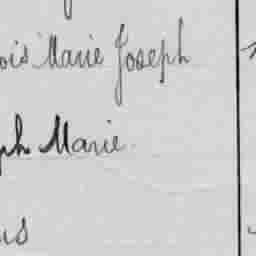 ois Marie Joseph
ph Marie
us